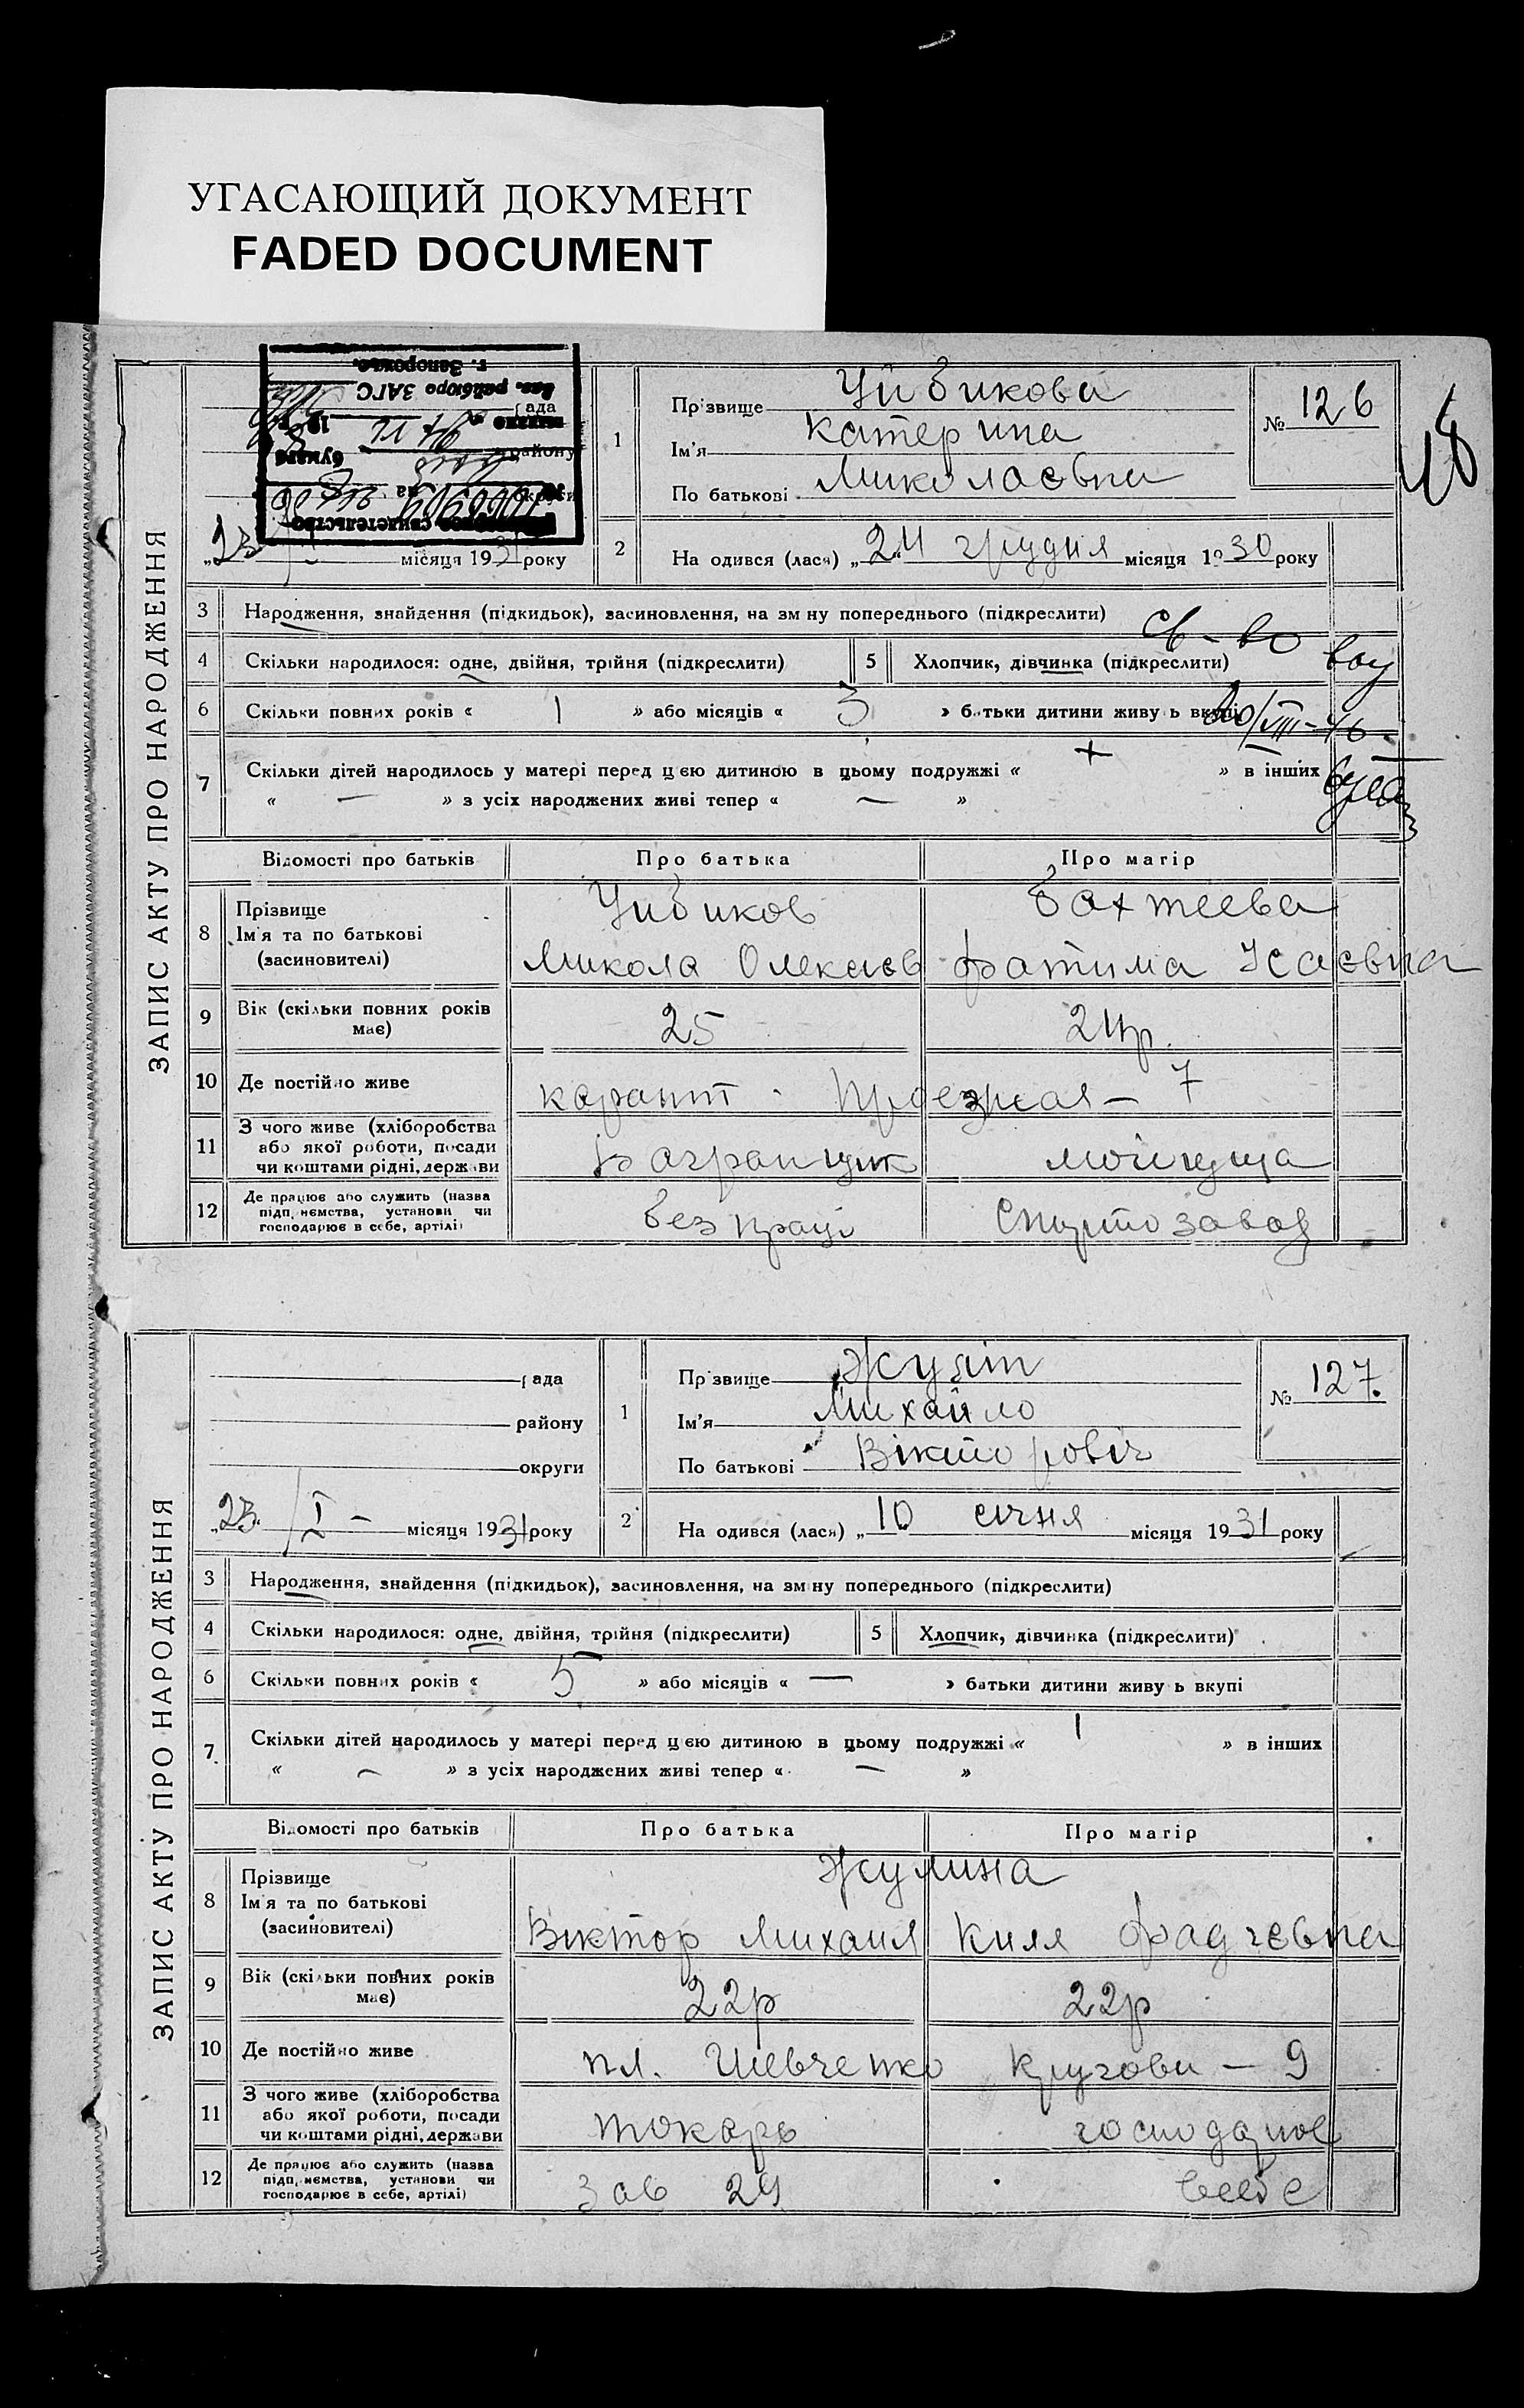 УГАСАЮЩИЙ ДОКУМЕНТ
FADED DOCUMENT
48
ЗАПИС АКТУ ПРО НАРОДЖЕННЯ
г. Запорожье
райбюро ЗАГС
рада
району
округи
свидетельство
„23“ місяця 1931 року
1
Прізвище Цибикова
Ім'я Катерина
По батькові Миколаєвна
№ 126
2
На одився (лася) „24“ грудня місяця 1930 року
3 Народження, знайдення (підкидьок), засиновлення, на зм ну попереднього (підкреслити)
св-во
4 Скільки народилося: одне, двійня, трійня (підкреслити)
5 Хлопчик, дівчинка (підкреслити)
6 Скільки повних років « 1 » або місяців « 3 » батьки дитини живу ь вкупі
20/VIII-46
7 Скільки дітей народилось у матері перед цією дитиною в цьому подружжі « + » в інших
« — » з усіх народжених живі тепер « — »
Відомості про батьків
Про батька
Про матір
8 Прізвище
Ім'я та по батькові
(засиновителі)
Цибиков
Микола Олексієв
Бахтеева
Фатима Ісаєвна
9 Вік (скільки повних років має)
25
24р.
10 Де постійно живе
карант. Проезная – 7
11 З чого живе (хліборобства
або якої роботи, посади
чи коштами рідні, держави
Вагранщик
мойщица
12 Де працює або служить (назва
підприємства, установи чи
господарює в себе, артілі)
без праці
Спиртозавод
ЗАПИС АКТУ ПРО НАРОДЖЕННЯ
рада
району
округи
„23“ / I – місяця 1931 року
1
Прізвище
Ім'я Михайло
По батькові Вікторовіч
№ 127.
2
На одився (лася) „10 січня місяця 1931 року
3 Народження, знайдення (підкидьок), засиновлення, на зм ну попереднього (підкреслити)
4 Скільки народилося: одне, двійня, трійня (підкреслити)
5 Хлопчик, дівчинка (підкреслити)
6 Скільки повних років « 5 » або місяців « — » батьки дитини живу ь вкупі
7. Скільки дітей народилось у матері перед цією дитиною в цьому подружжі « 1 » в інших
« — » з усіх народжених живі тепер « — »
Відомості про батьків
Про батька
Про матір
8 Прізвище
Ім'я та по батькові
(засиновителі)
Жулина
Віктор Михаил
Киля Фадчевна
9 Вік (скільки повних років має)
22р
22р
10 Де постійно живе
пл. Шевченко Кругова – 9
11 З чого живе (хліборобства
або якої роботи, посади
чи коштами рідні, держави
токарь
господарює
12 Де працює або служить (назва
підприємства, установи чи
господарює в себе, артілі)
Зав 29
в себе